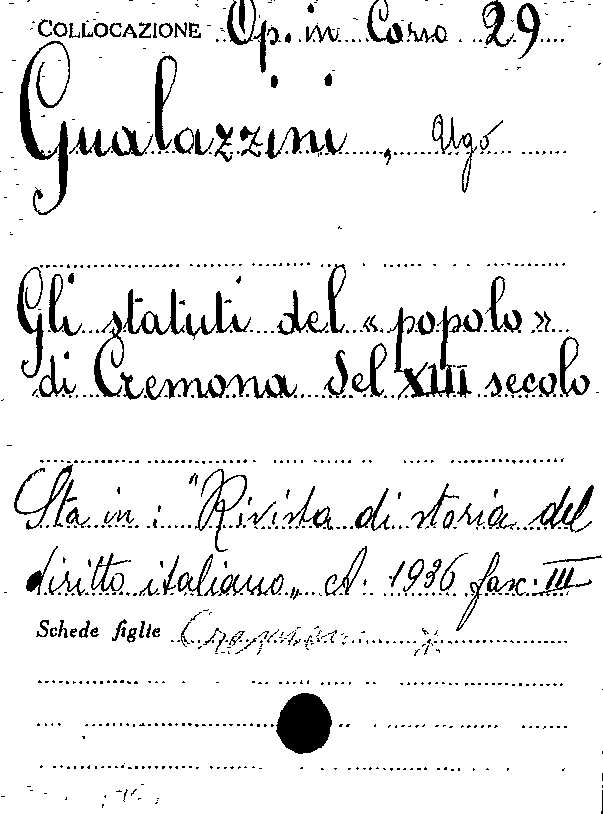 COLLOCAZIONE Op. in Corso 29
Gualazzini, Ugo
Gli statuti del «popolo»
di Cremona del XIII secolo
Sta in: "Rivista di storia del
diritto italiano„ A. 1936 fasc. III
Schede figlie Cremona